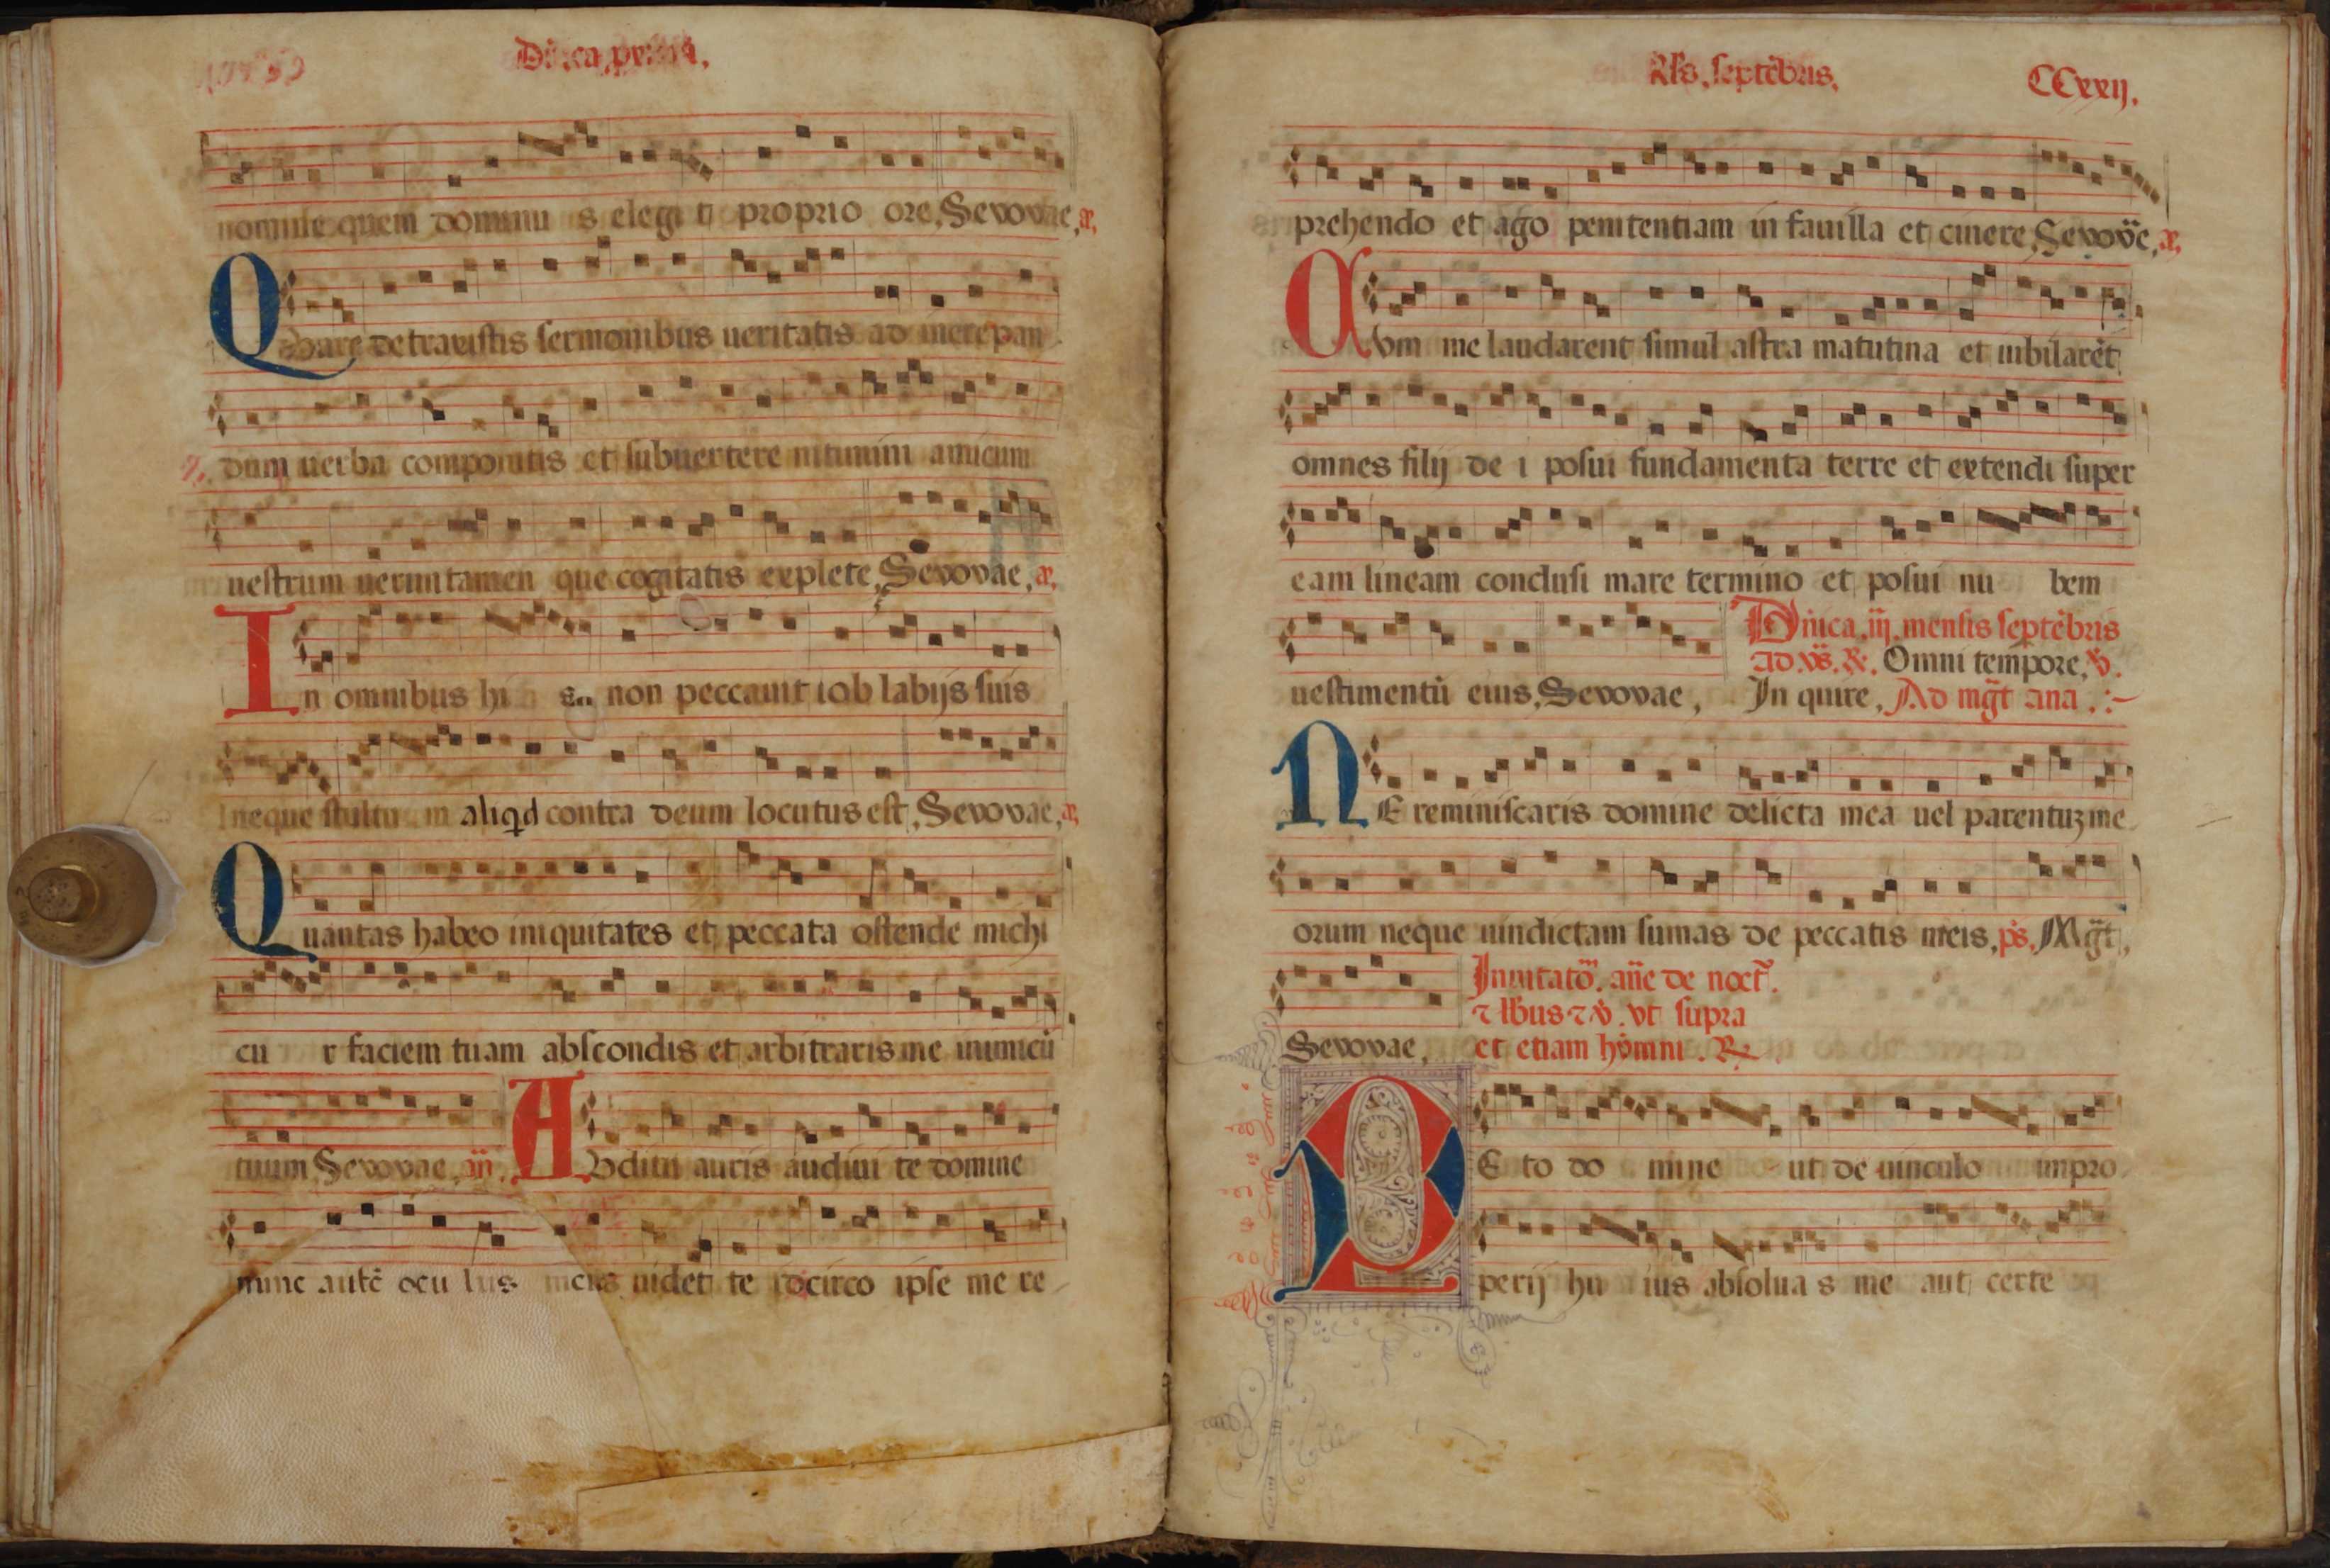 Dnica prima.
nomine quem dominu s elegi t proprio ore, Sevovae, æ,
Quare detraxistis sermonibus ueritatis ad increpan
dum uerba componitis et subuertere nitimini amicum
uestrum ueruntamen que cogitatis explete, Sevovae, æ,
In omnibus hi s non peccauit iob labijs suis
neque stultu m aliqd contra deum locutus est, Sevovae, æ,
Quantas habeo iniquitates et peccata ostende michi
cu r faciem tuam abscondis et arbitraris me inimicū
tuum, Sevovae, añ, Avditu auris audiui te domine
nunc autē ocu lus meus uidet te idcirco ipse me re
Kls. septēbris. CCxxij.
prehendo et ago penitentiam in fauilla et cinere, Sevovāe, æ,
Cvm me laudarent simul astra matutina et iubilarēt
omnes filij de i posui fundamenta terre et extendi super
eam lineam conclusi mare termino et posui nu bem
Dnica .iij. mensis septēbris
ad .vs. R. Omni tempore, V.
uestimentū eius, Sevovae, In quire, Ad mgt ana .:~
NE reminiscaris domine delicta mea uel parentuz me
orum neque uindictam sumas de peccatis meis, ps. Mgt,
Inuitatō. añe de noct.
⁊ lbus ⁊ V. vt supra
Sevovae, et etiam hÿmni. R
PEto do mine ut de uinculo impro
perij hu ius absolua s me aut certe